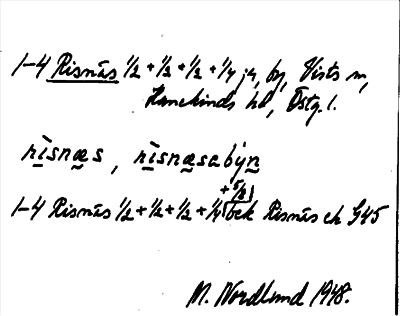 1-4 Risnäs 1/2 + 1/2 + 1/2 + 1/4 jr, by, Vists sn,
Hanekinds hd, Östg. l.
rìsnæs, rìsnæsabýn
+ 5/8
1-4 Risnäs 1/2 + 1/2 + 1/2 + 1/4 bek Risnäs ek G45
M. Nordlund 1948.